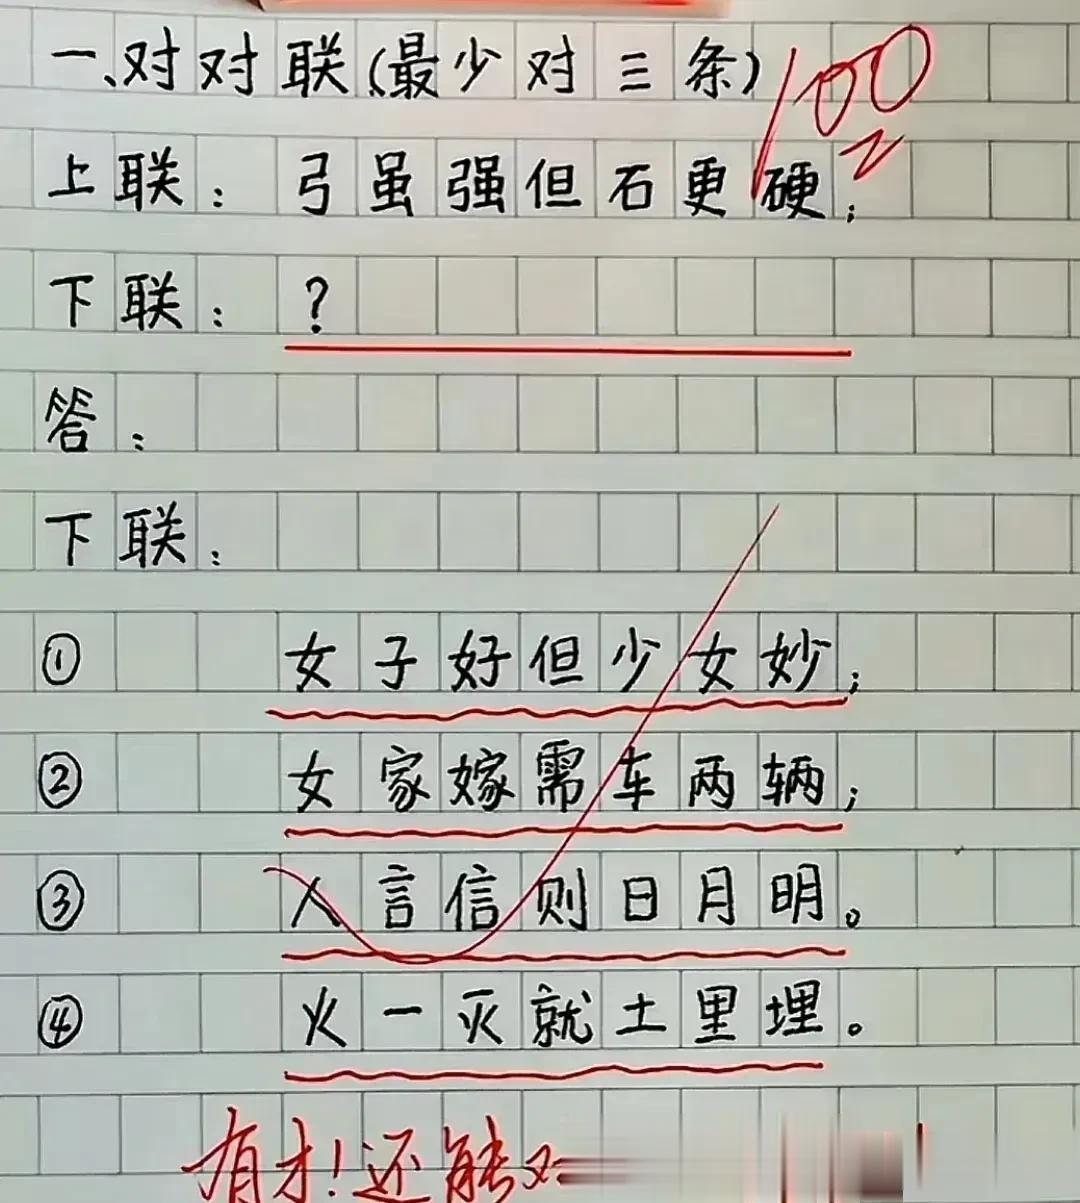 一、对对联(最少对三条)
100
上联：弓虽强但石更硬；
下联：？
答：
下联：
① 女子好但少女妙；
② 女家嫁需车两辆；
③ 人言信则日月明。
④ 火一灭就土里埋。
有才！还能对